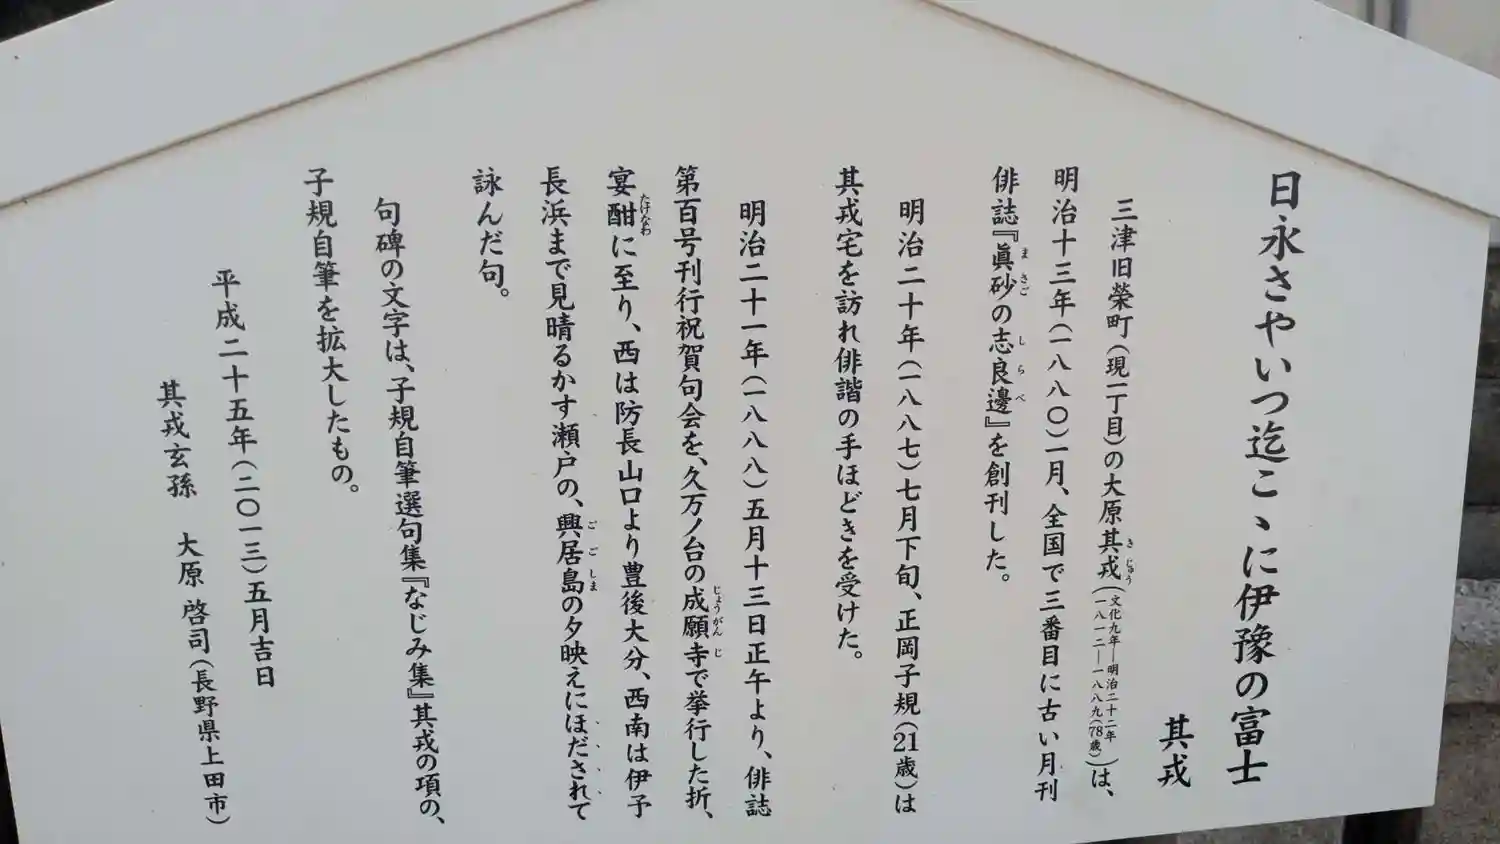 日永さやいつ迄こゝに伊豫の富士
其戎
三津旧榮町(現一丁目)の大原其戎(文化九年―明治二十二年 一八一二―一八八九(78歳))は、
明治十三年(一八八〇)一月、全国で三番目に古い月刊
俳誌『眞砂の志良邊』を創刊した。
明治二十年(一八八七)七月下旬、正岡子規(21歳)は
其戎宅を訪れ俳諧の手ほどきを受けた。
明治二十一年(一八八八)五月十三日正午より、俳誌
第百号刊行祝賀句会を、久万ノ台の成願寺で挙行した折、
宴酣に至り、西は防長山口より豊後大分、西南は伊予
長浜まで見晴るかす瀬戸の、興居島の夕映えにほだされて
詠んだ句。
句碑の文字は、子規自筆選句集『なじみ集』其戎の項の、
子規自筆を拡大したもの。
平成二十五年(二〇一三)五月吉日
其戎玄孫 大原啓司(長野県上田市)